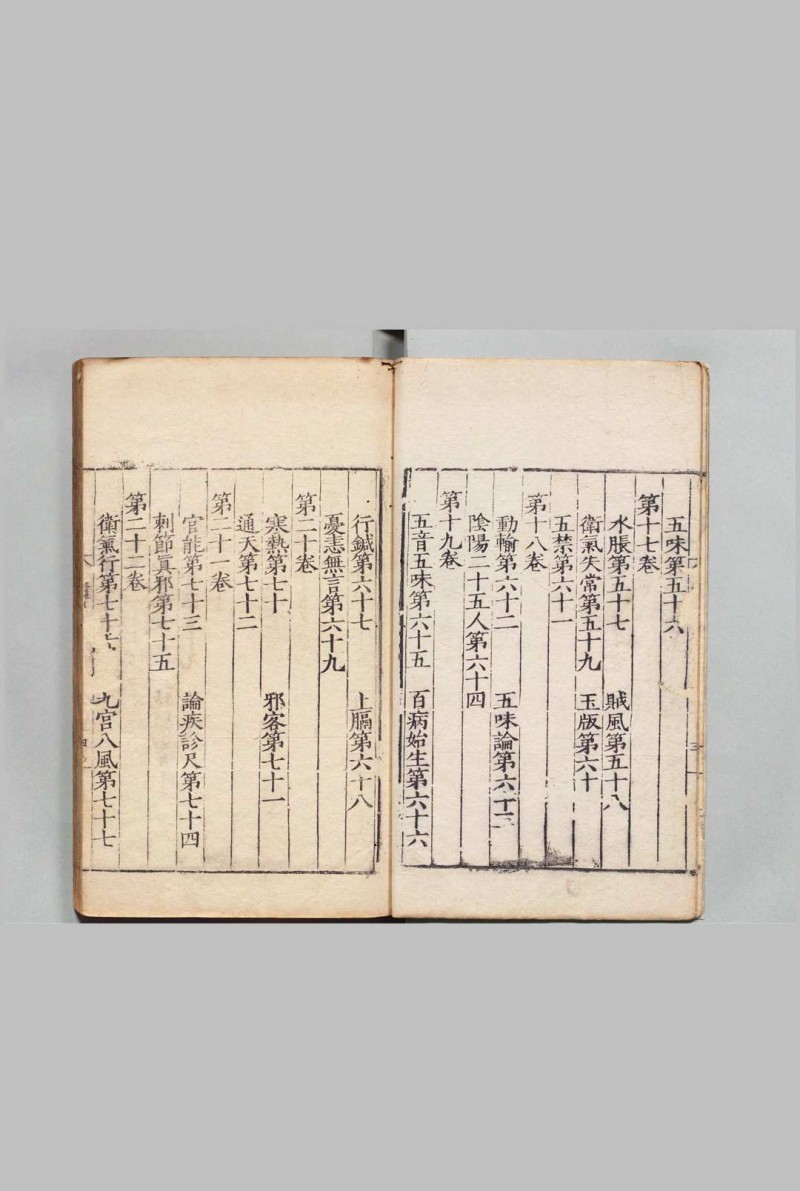 五味第五十六
第十七卷
水脹第五十七　賊風第五十八
衛氣失常第五十九　玉版第六十
五禁第六十一
第十八卷
動輸第六十二　五味論第六十三
陰陽二十五人第六十四
第十九卷
五音五味第六十五　百病始生第六十六
行鍼第六十七　上膈第六十八
憂恚無言第六十九
第二十卷
寒熱第七十　邪客第七十一
通天第七十二
第二十一卷
官能第七十三　論疾診尺第七十四
刺節真邪第七十五
第二十二卷
衛氣行第七十六　九宮八風第七十七